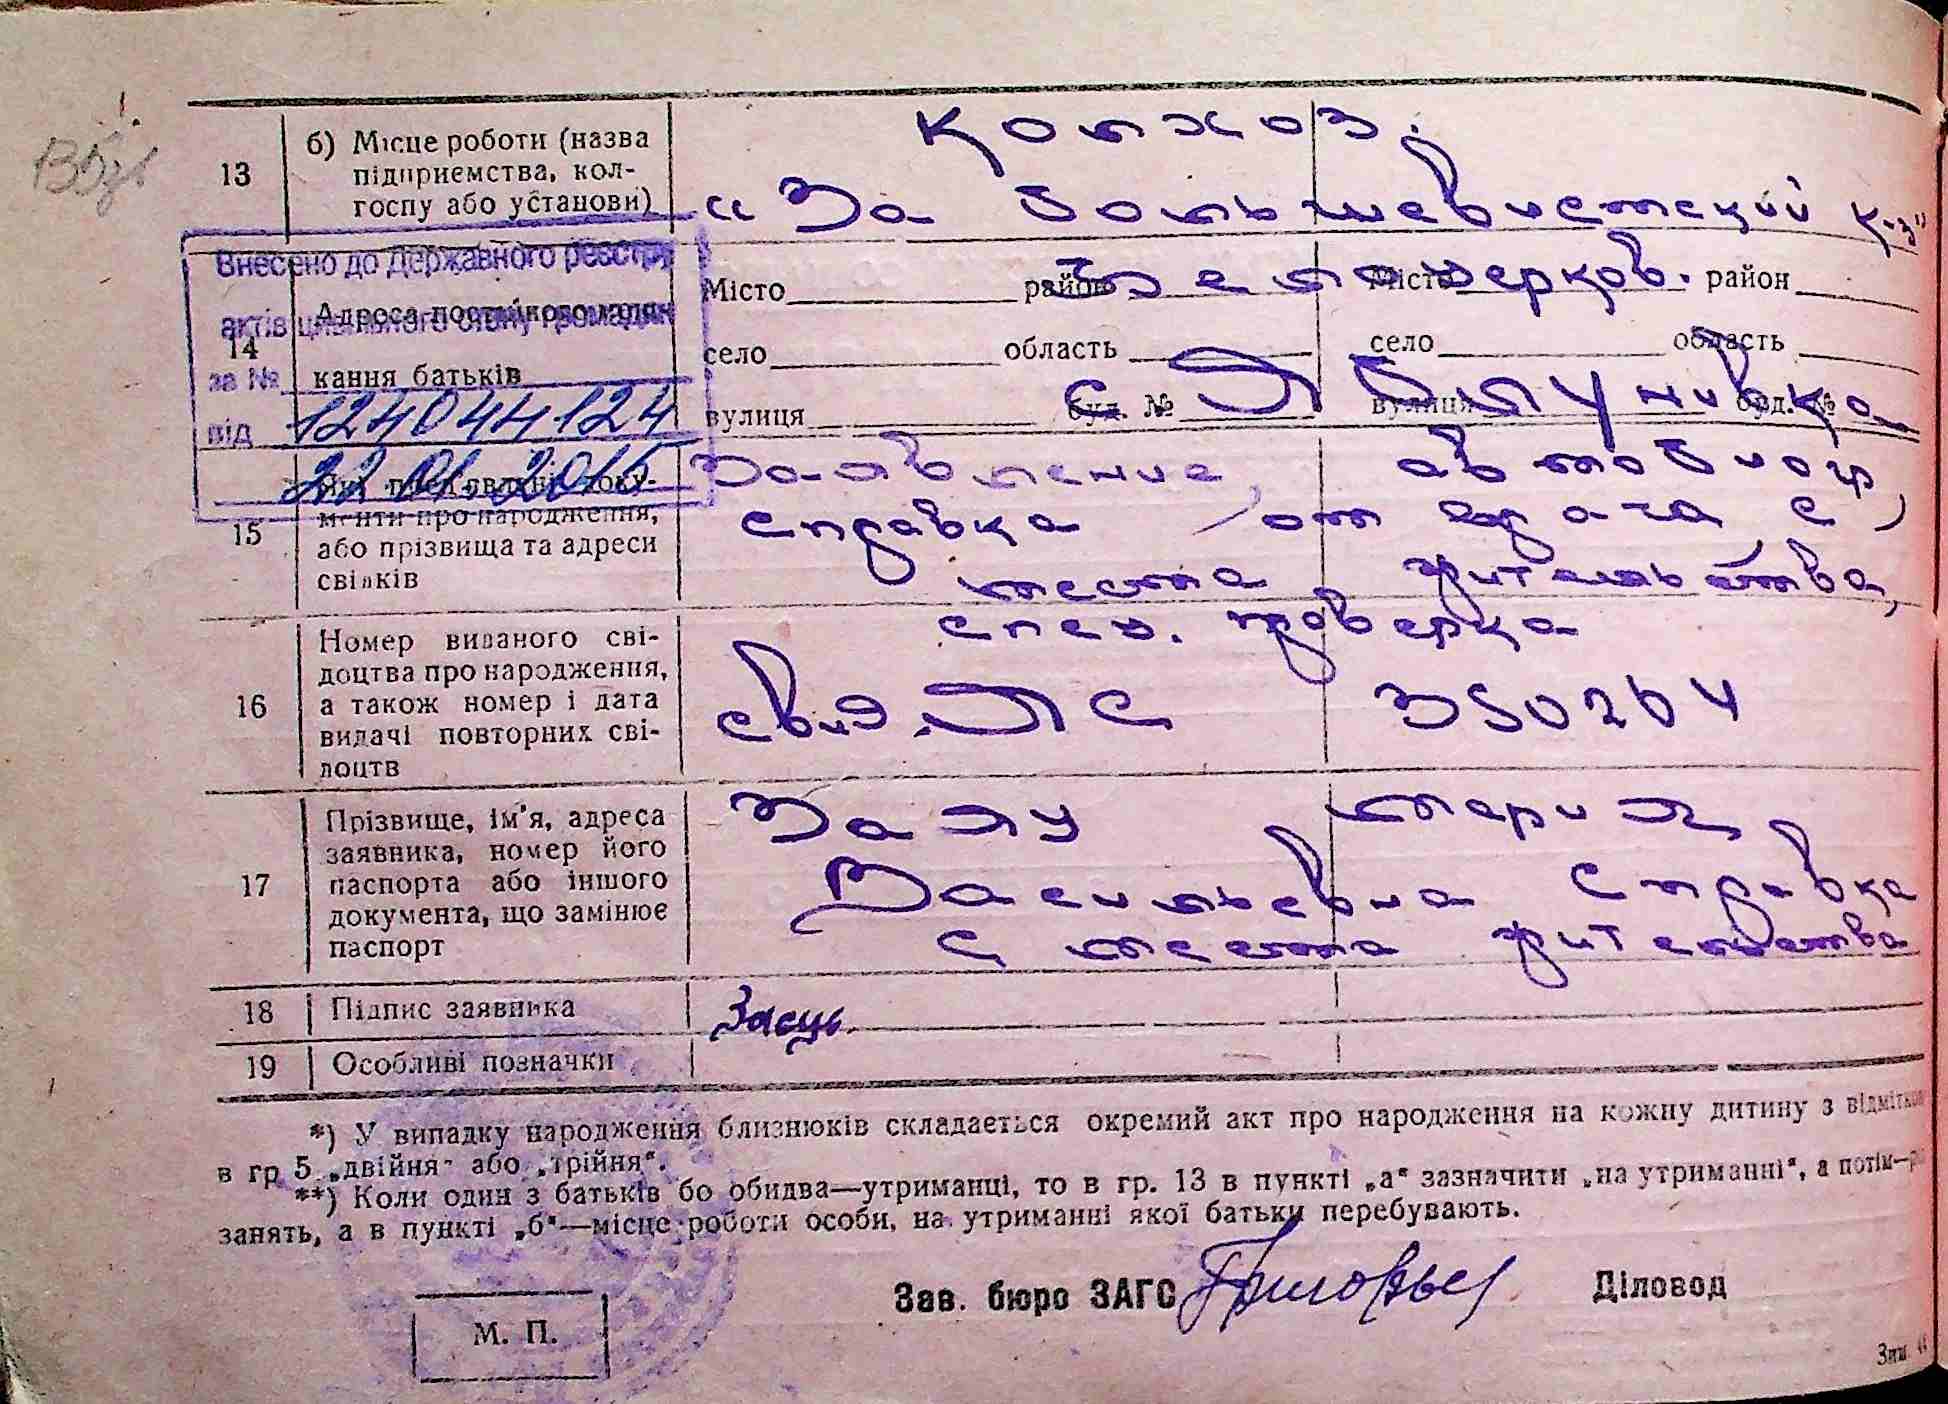 13
б) Місце роботи (назва
підприємства, кол-
госпу або установи)
колхоз.
"За большевистский к-з"
Внесено до Державного реєстру
актів цивільного стану громадян
за №
124044124
від
22.01.2015
14
Адреса постійного меш-
кання батьків
Місто район Місто район
Белоцерков.
село область село область
с. Яблунивка
вулиця буд. № вулиця буд. №
15
менти про народження,
або прізвища та адреси
свідків
Заявление, автобиогр,
справка от врача с
места жительства,
спец. проверка
16
Номер виданого сві-
доцтва про народження,
а також номер і дата
видачі повторних сві-
доцтв
свид. ЯС 350264
17
Прізвище, ім'я, адреса
заявника, номер його
паспорта або іншого
документа, що замінює
паспорт
Мария
Васильевна справка
с места жительства
18
Підпис заявника
Заєць
19
Особливі позначки
*) У випадку народження близнюків складається окремий акт про народження на кожну дитину з відміткою
в гр 5 „двійня" або „трійня".
**) Коли один з батьків бо обидва—утриманці, то в гр. 13 в пункті „а" зазначити „на утриманні", а потім—
занять, а в пункті „б"—місце роботи особи, на утриманні якої батьки перебувають.
Зав. бюро ЗАГС Діловод
М. П.